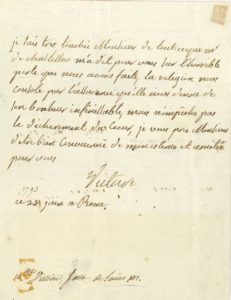 je suis très touchée Monsieur de tout ce que m'a
de chastellux m'a dit pour vous sur l'horrible
perte que nous avons faite, la religion nous
console par l'assurance qu'elle nous donne de
son bonheur inéfable, mais n'empêche pas
le déchirement du cœur, je vous prie Monsieur
d'être bien convaincu de mon estime et amitié
pour vous
Victoire
1793
ce 28 juin à Rome.